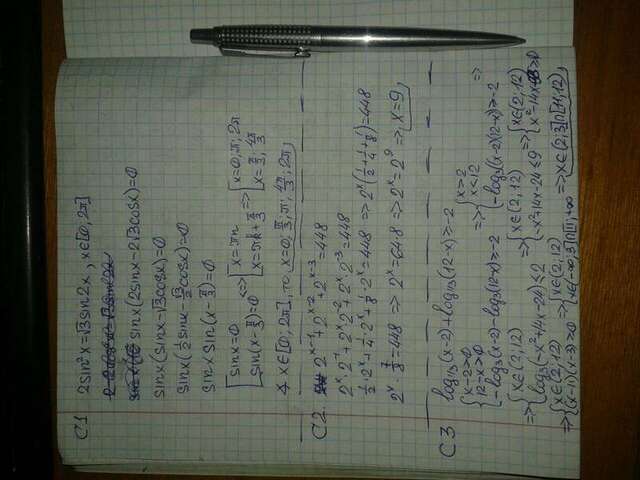 C1
2sin²x=√3sin2x, x∈[0,2π]
sinx(2sinx-2√3cosx)=0
sinx(sinx-√3cosx)=0
sinx(½sinx-√3/2cosx)=0
sinx sin(x-π/3)=0
[sinx=0 [sin(x-π/3)=0 <=> [x=πn [x=πk+π/3 => [x=0;π;2π [x=π/3;4π/3
x∈[0;2π], x=0;π/3;π;4π/3;2π
C2. 2^(x-1)+2^(x-2)+2^(x-3)=448
2^x·2^-1+2^x·2^-2+2^x·2^-3=448
½·2^x+¼·2^x+⅛·2^x=448 => 2^x(½+¼+⅛)=448
2^x·⅞=448 => 2^x=648 => 2^x=2^9 => x=9
C3 log1/3(x-2)+log1/3(12-x)≥-2
{x-2>0 {12-x>0 {-log3(x-2)-log3(12-x)≥-2 => {x>2 {x<12 {-log3(x-2)(12-x)≥-2 =>
=> {x∈(2;12) {log3(-x²+14x-24)≤2 => {x∈(2;12) {-x²+14x-24≤9 => {x∈(2;12) {x²-14x+33≥0
=> {x∈(2;12) {(x-11)(x-3)≥0 => {x∈(2;12) {x∈(-∞;3]∩[11;+∞ => x∈(2;3]∩[11;12)